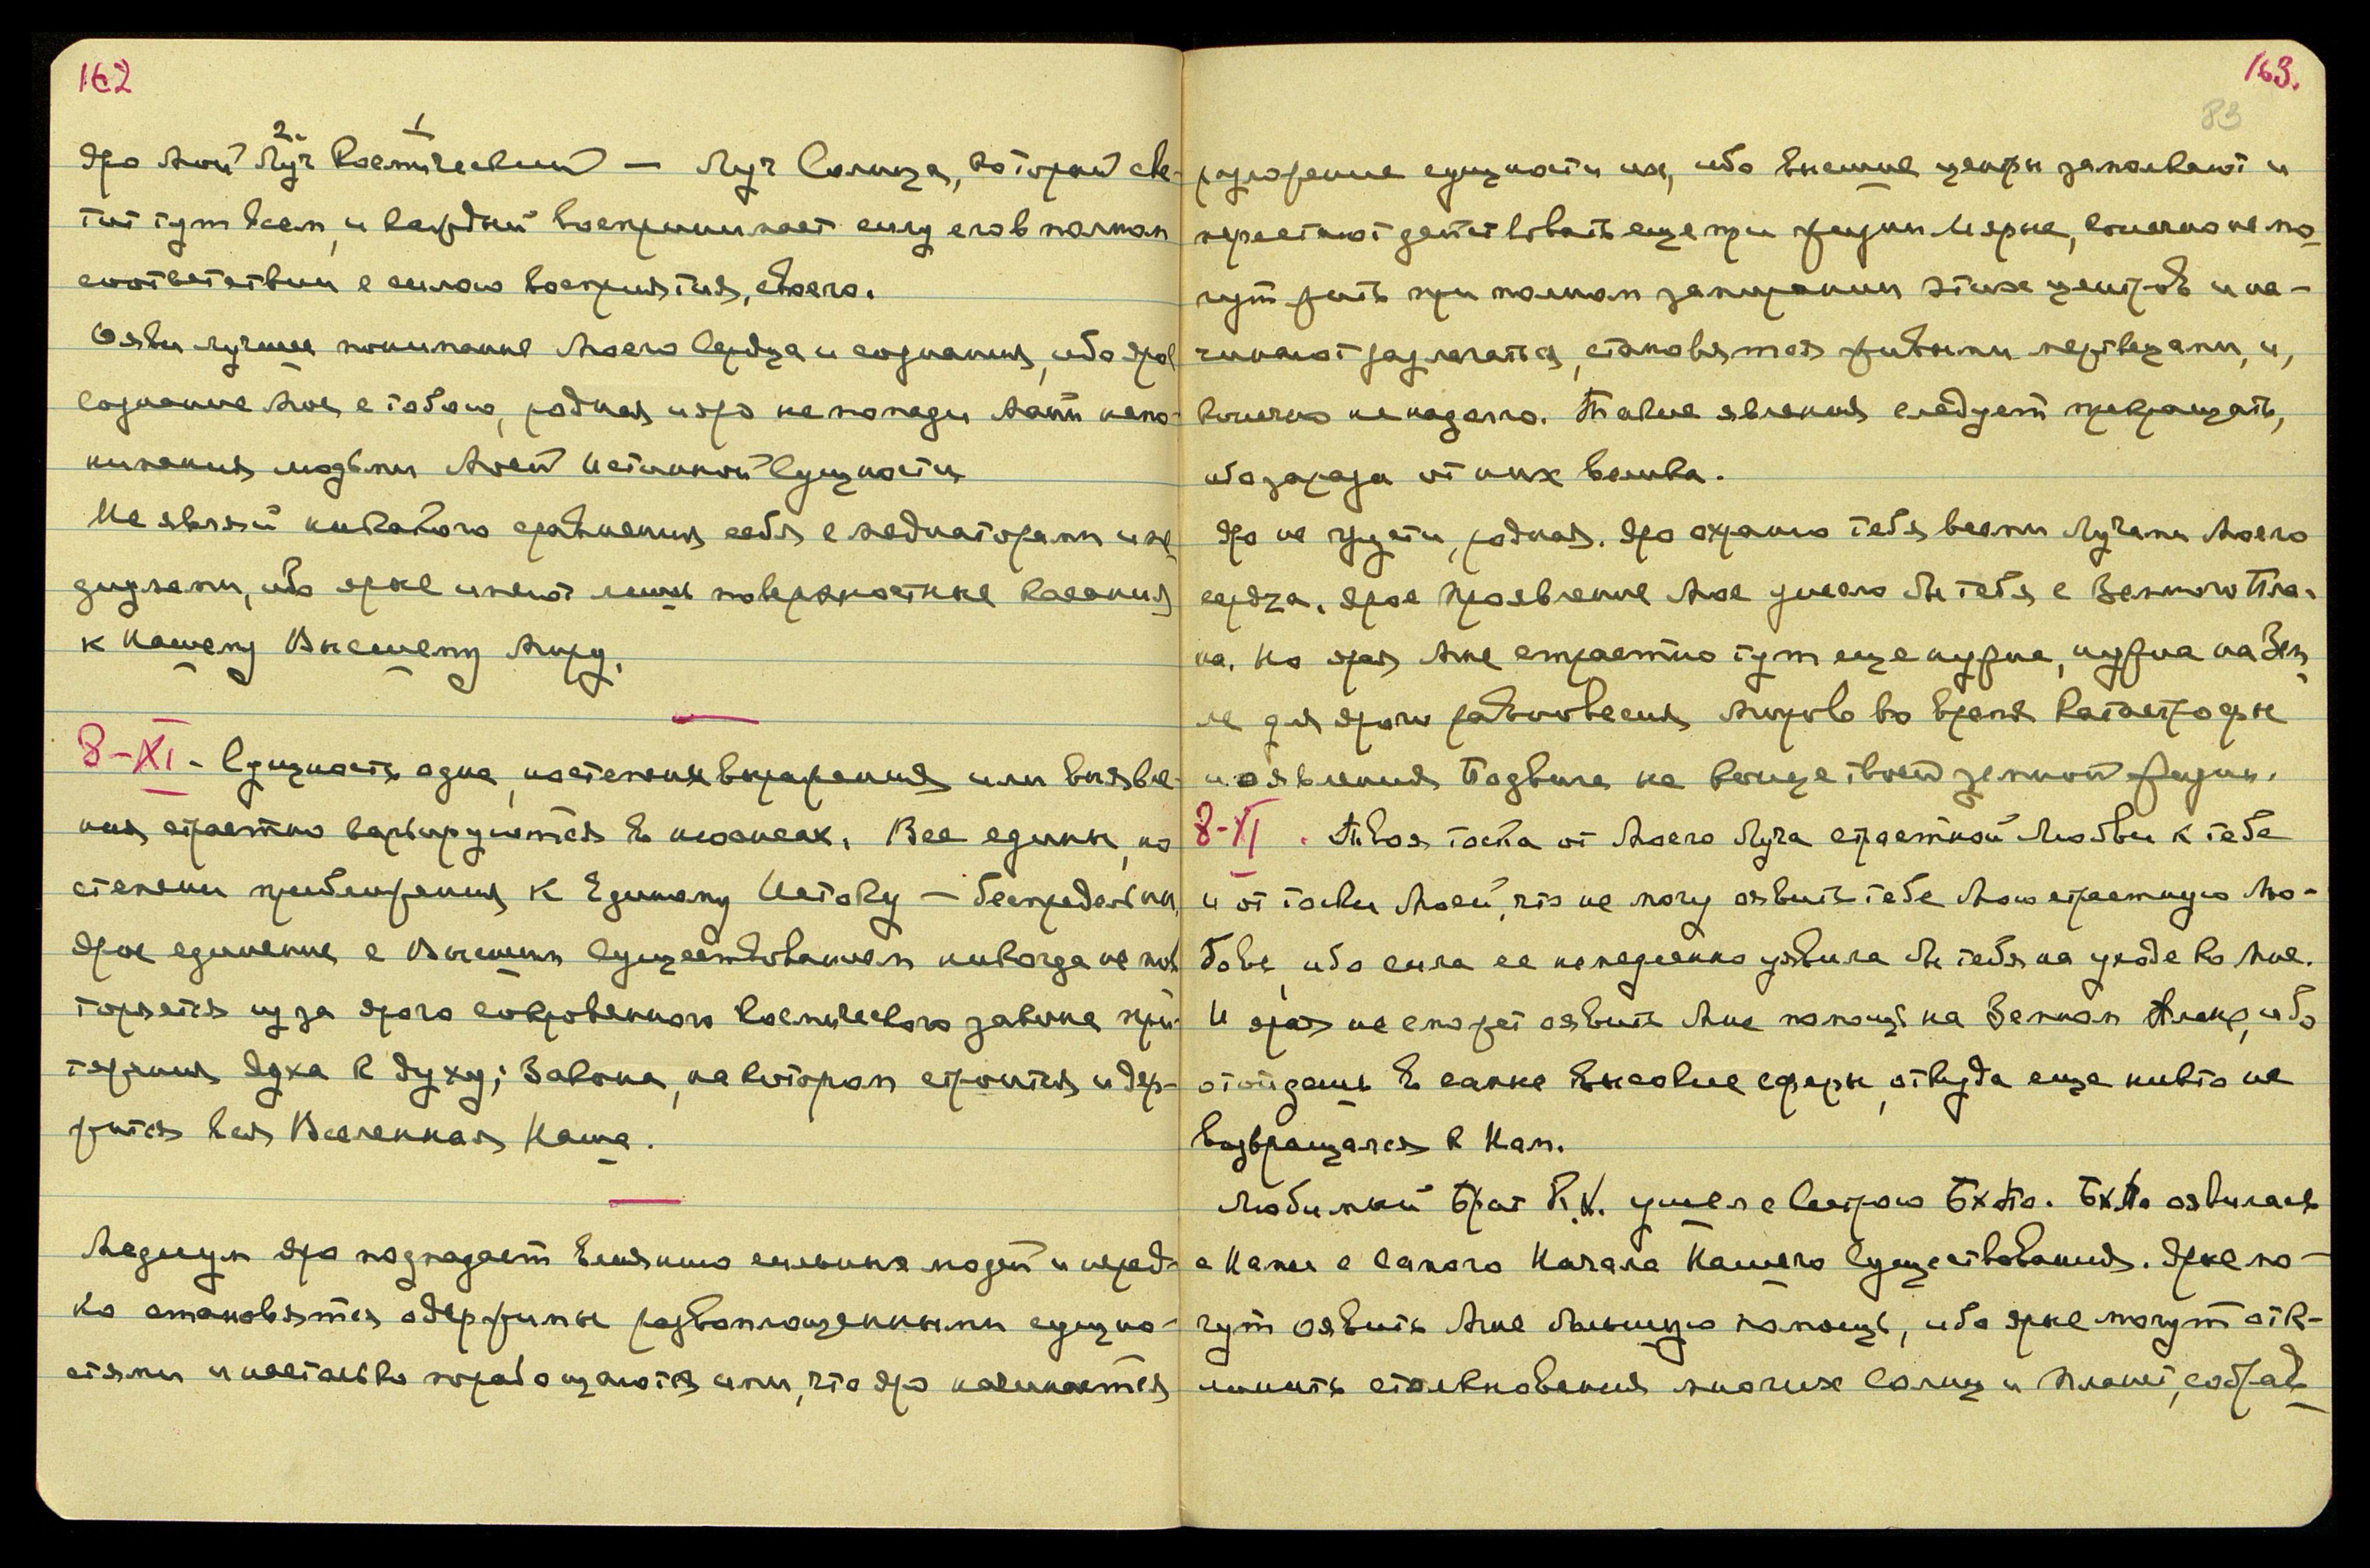 162
2. 1
Яро Мой Луч Космический — Луч Солнца, который све-
тит тут всем, и каждый воспринимает силу его в полном
соответствии с силою восприятия, своего.
Яви лучшее понимание Моего Сердца и сознания, ибо ярое
сознание Мое с тобою, родная и яро не
людьми Моей Истинной Сущности
Не являй никакого сравнения себя с медиаторами и ме-
диумами, ибо ярые имеют лишь поверхностные касания
к Нашему Высшему Миру.
8-XI - Сущность одна, но степени выражения или выявле-
ния страстно варьируются в нюансах. Все едины, но
степени приближения к Единому Истоку — беспредельны,
Ярое единение с Высшим Существованием никогда не пов-
торяется из за ярого сокровенного космического закона при-
тяжения духа к духу; Закона, на котором строится и дер-
жится вся Вселенная Наша.
Медиум яро подпадает влиянию сильных людей и неред-
ко становятся одержимы развоплощенными сущно-
стями и настолько порабощаются ими, что яро начинается
163.
83
разложение сущности их, ибо высшие центры замолкают и
перестают действовать еще при жизни Ярые, конечно не мо-
гут жить при полном запирании этих центров и на-
чинают разлагаться, становятся живыми мертвецами, и,
конечно ненадолго. Такие явления следует прекращать,
ибо зараза от них велика.
Яро не грусти, родная. Яро охраню тебя всеми Лучами Моего
сердца. Ярое Проявление Мое унесло бы тебя с Земного Пла-
на. Но ярая Мне страстно тут еще нужна, нужна на Зем-
ле для ярого равновесия Миров во время Катастрофы
и оявления Подвига на конце твоей земной жизни.
8-XI. Твоя тоска от Моего Луча страстной Любви к тебе
и от тоски Моей, что не могу оявить тебе Мою страстную Лю-
бовь, ибо сила ее немедленно уявила бы тебя на уходе ко Мне.
И ярая не сможет оявить Мне помощь на Земном Плане, ибо
отойдешь в самые высокие сферы, откуда еще никто не
возвращался к Нам.
Любимый Брат К.Х. ушел с Сестрою Бхто. Бхто оявилась
с Нами с самого Начала Нашего Существования. Ярые мо-
гут оявить Мне большую помощь, ибо ярые могут отк-
лонить столкновения многих Солнц и Планет, собрав